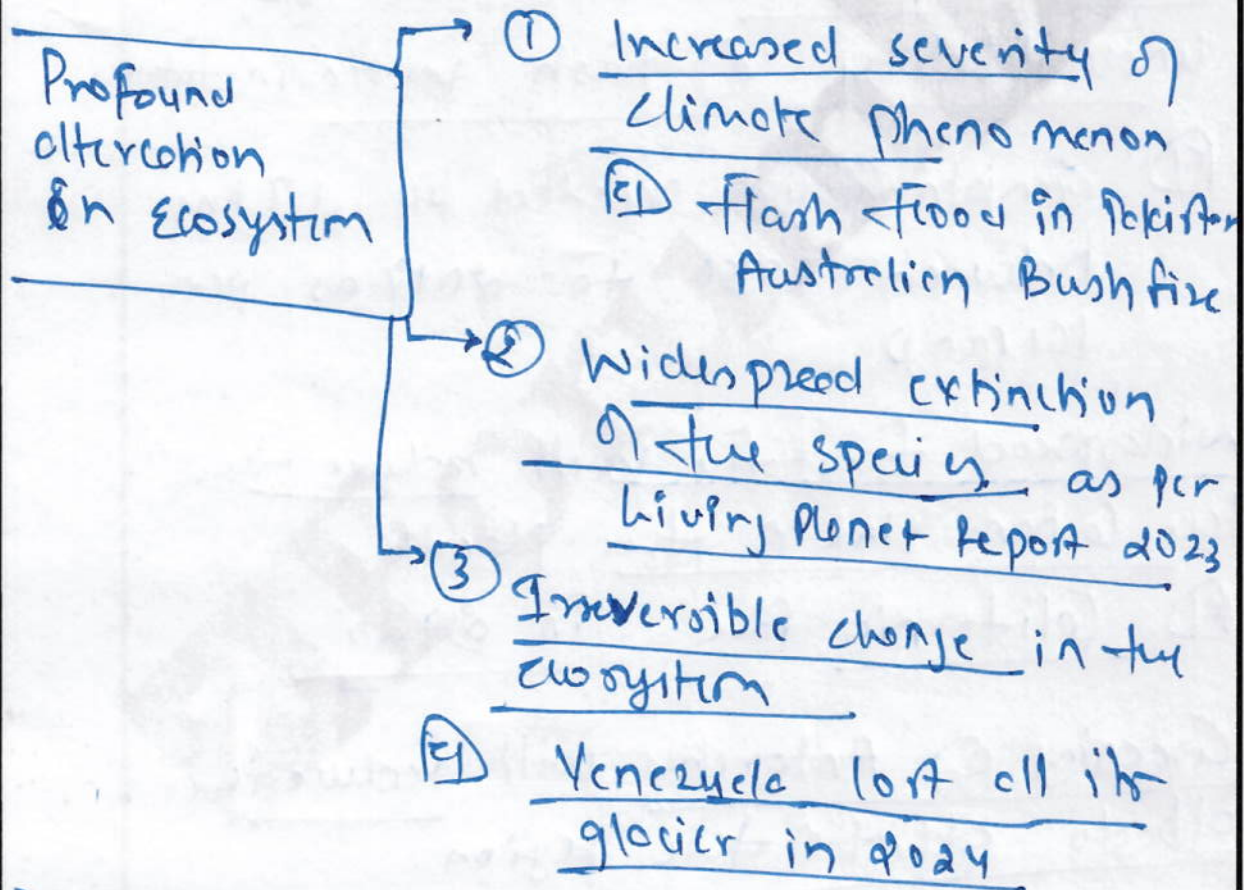 Profound
altercation
in Ecosystem
① Increased severity of
climate phenomenon
Eg Flash flood in Pakistan
Australian Bushfire
② Widespread extinction
of the species as per
Living Planet Report 2023
③ Irreversible change in the
ecosystem
Eg Venezuela lost all its
glacier in 2024